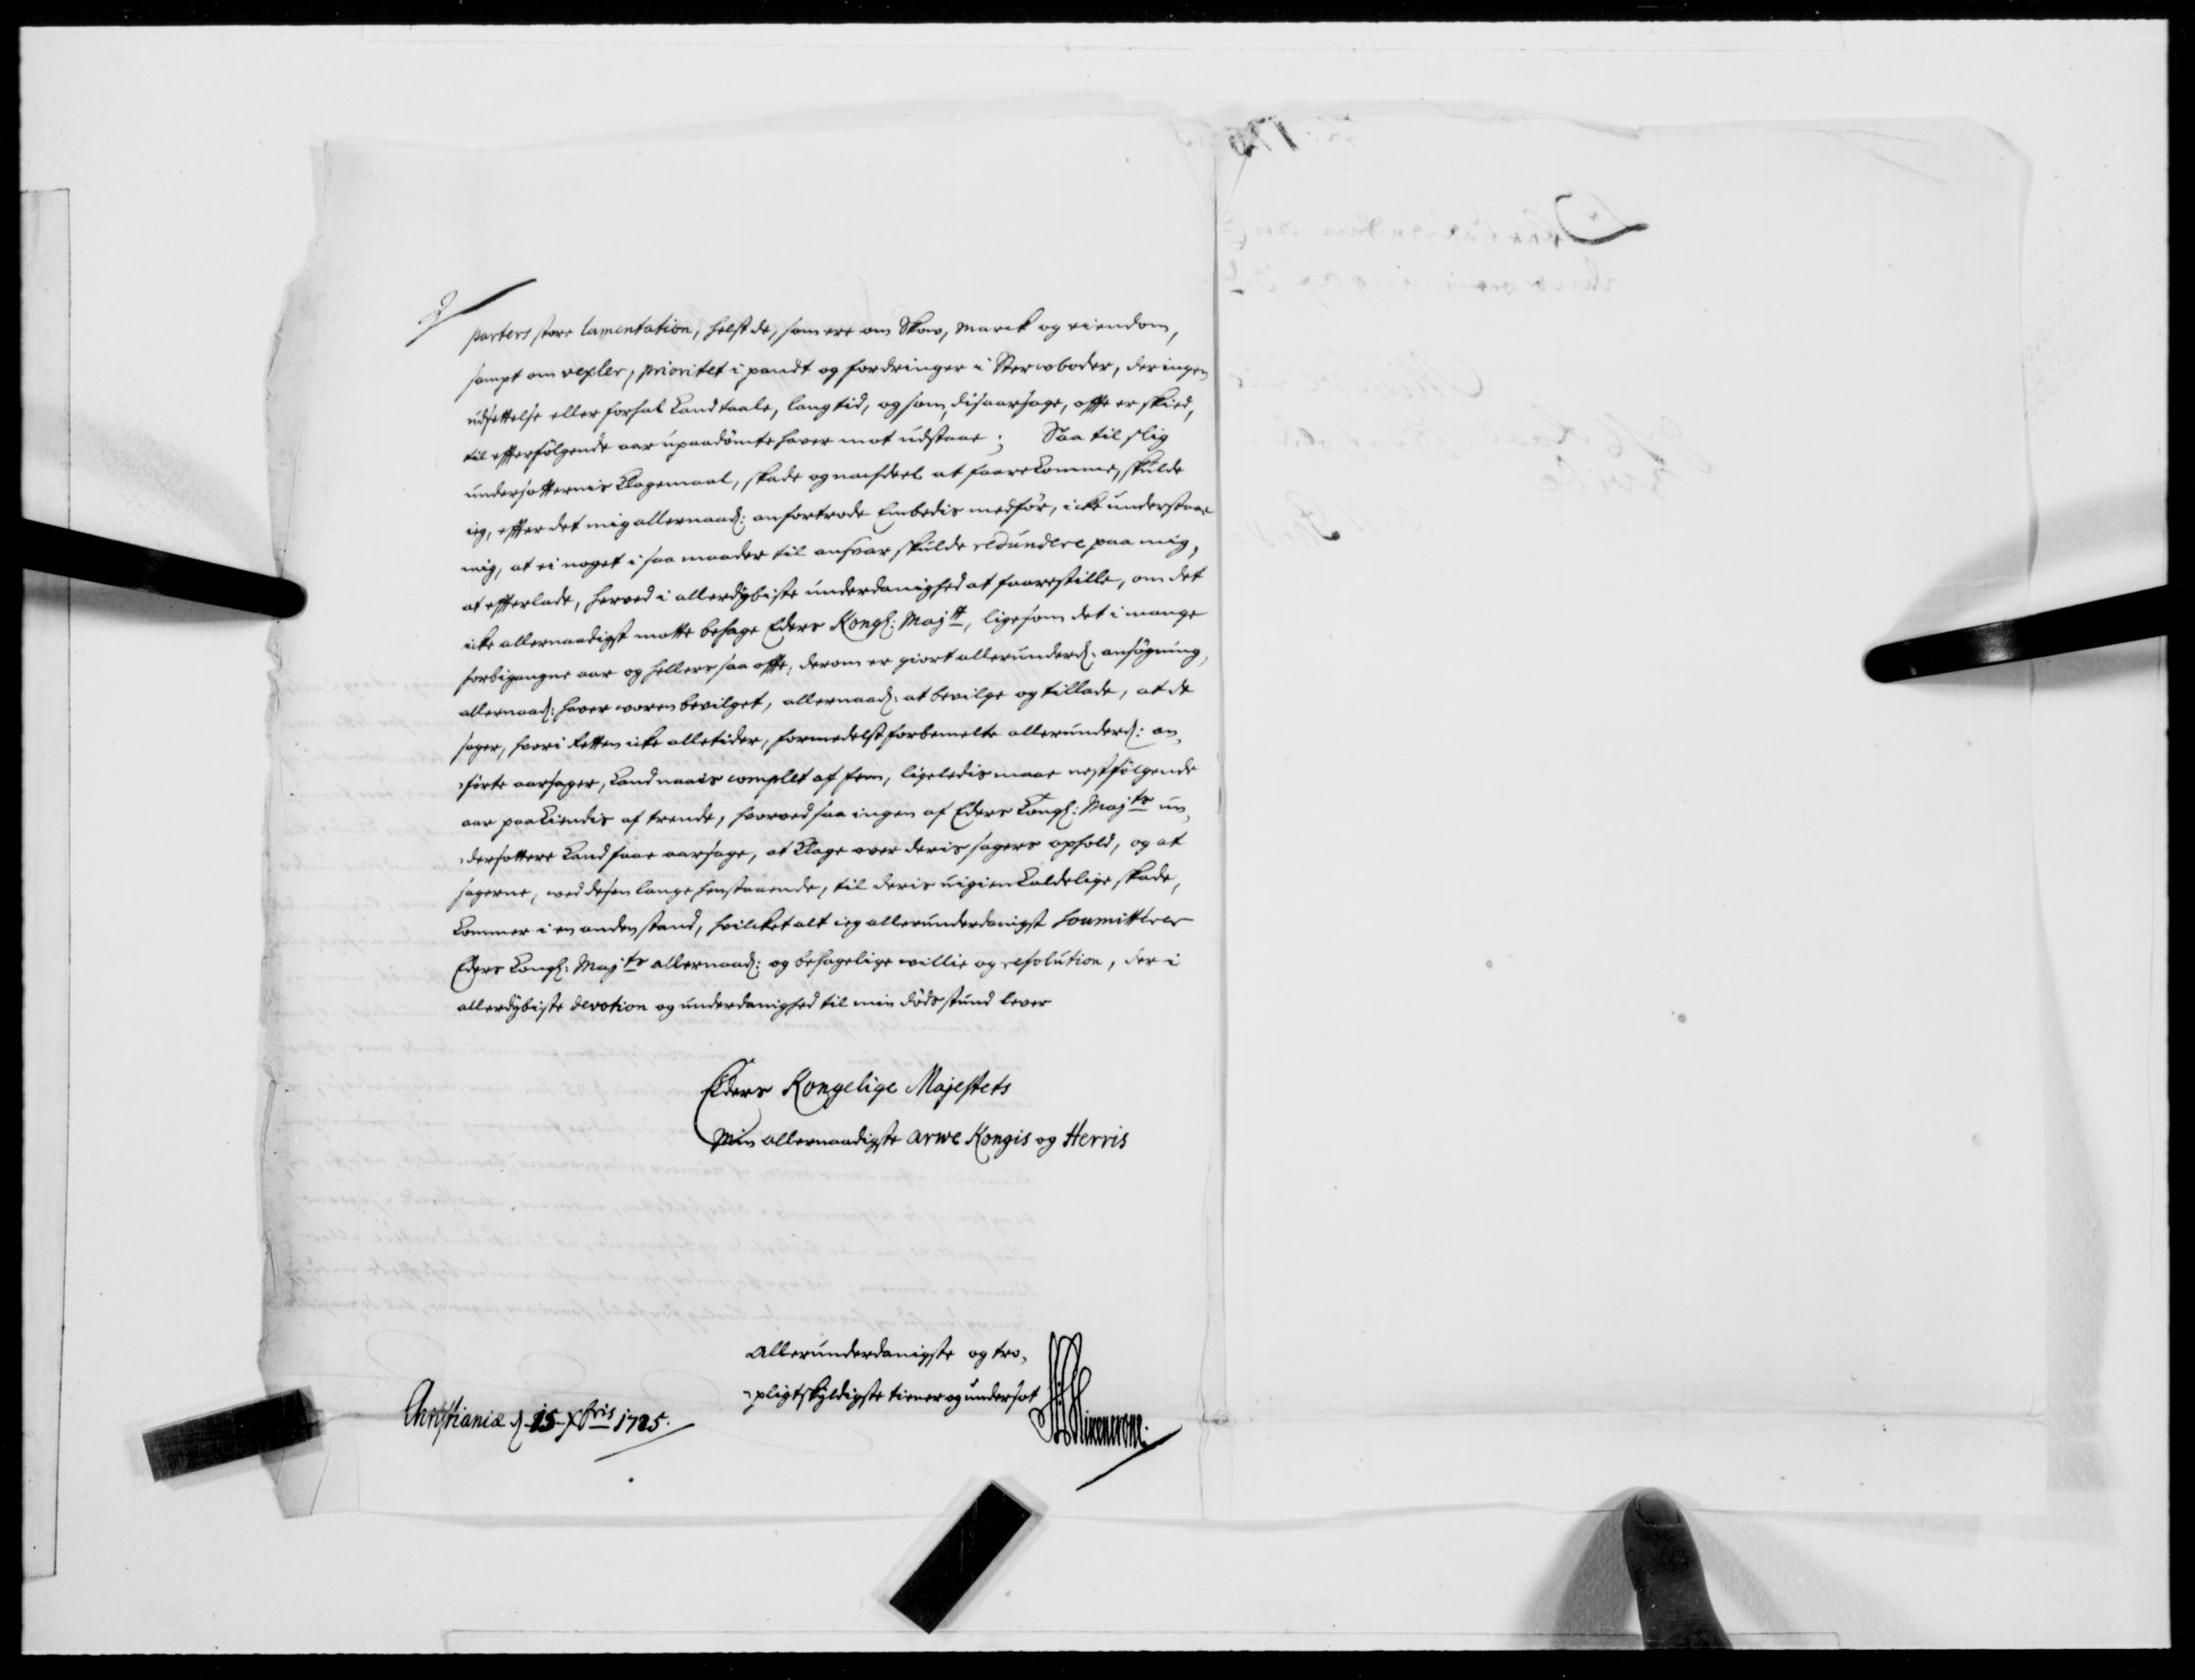 parters store lamentation, helst de, som ere om Skow, Marck og eiendom,
sampt om vexler, prioritet i pandt og fordringer i Sterwboder, der ingen
udsettelse eller forhal kand taale, lang tid, og som, dis aarsage, offte er skied,
til efterfølgende aar upaadömte haver mot udstaae; Saa til slig
undersotternis klagemaal, skade og nachdeel at faarekomme, skulde
ieg, effter det mig allernaad: anfortrode Embedis medför, icke understaae
mig, at ei noget i saa maader til ansvar skulde redundere paa mig,
at efterlade, herved i allerdÿbiste underdanighed at faarestille, om det
icke allernaadigst motte behage Eders Kongl: Majtt, ligesom det i mange
forbigangne aar og hellers saa offte, derom er giort allerunderd: ansögning,
allernaad: haver waren bevilget, allernaad: at bevilge og tillade, at de
sager, hvori Retten icke alletider, formedelst forbemelte allerunderd: an-
-förte aarsager, kand naais complet af fem, ligeledis maae nestfölgende
aar paakiendis af trende, hvorved saa ingen af Eders Kongl: Majts un-
-dersottere kand faae aarsage, at klage over deris sagers ophold, og at
sagerne, wed desen lange henstaaende, til deris uigienkaldelige skade,
kommer i en anden stand, hvilcket alt ieg allerunderdanigst soumitterer
Eders Kongl: Majts allernaad: og behagelige willie og resolution, der i
allerdÿbiste devotion og underdanighed til min döds stund lever
Eders Kongelige Majestets
Min allernaadigste Arwe Kongis og Herris
Allerunderdanigste og tro-
-pligtskÿldigste tiener og undersot
Christiania d. 15 Xbris 1725.